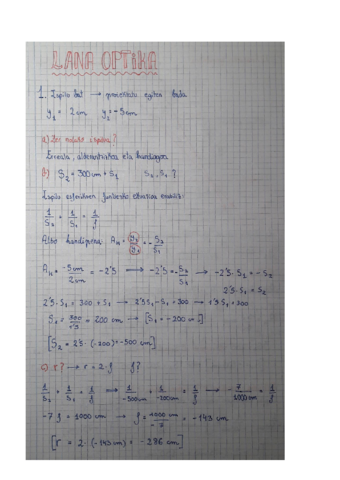 LANA OPTIKA
1. Ispilu bat → proiektatu egiten badu
y₁ = 2cm y₂ = -5cm
a) Zer motako ispilua?
Erreala, alderantzizkoa eta handiagoa
b) S₂ = 300cm + S₁ S₂, S₁ ?
Ispilu esferikoen funtsezko ekuazioa erabiliz:
1/S₂ + 1/S₁ = 1/f
Albo handipena: Aₕ = y₂/y₁ = -S₂/S₁
Aₕ = -5cm/2cm = -2'5 → -2'5 = -S₂/S₁ → -2'5·S₁ = -S₂
2'5·S₁ = S₂
2'5·S₁ = 300 + S₁ → 2'5S₁ - S₁ = 300 → 1'5S₁ = 300
S₁ = 300/1'5 = 200 cm → [S₁ = -200 cm]
[S₂ = 2'5·(-200) = -500 cm]
c) r? → r = 2·f f?
1/S₂ + 1/S₁ = 1/f → 1/-500cm + 1/-200cm = 1/f → -7/1000cm = 1/f
-7f = 1000cm → f = 1000cm/-7 = -143 cm
[r = 2·(-143cm) = -286 cm]